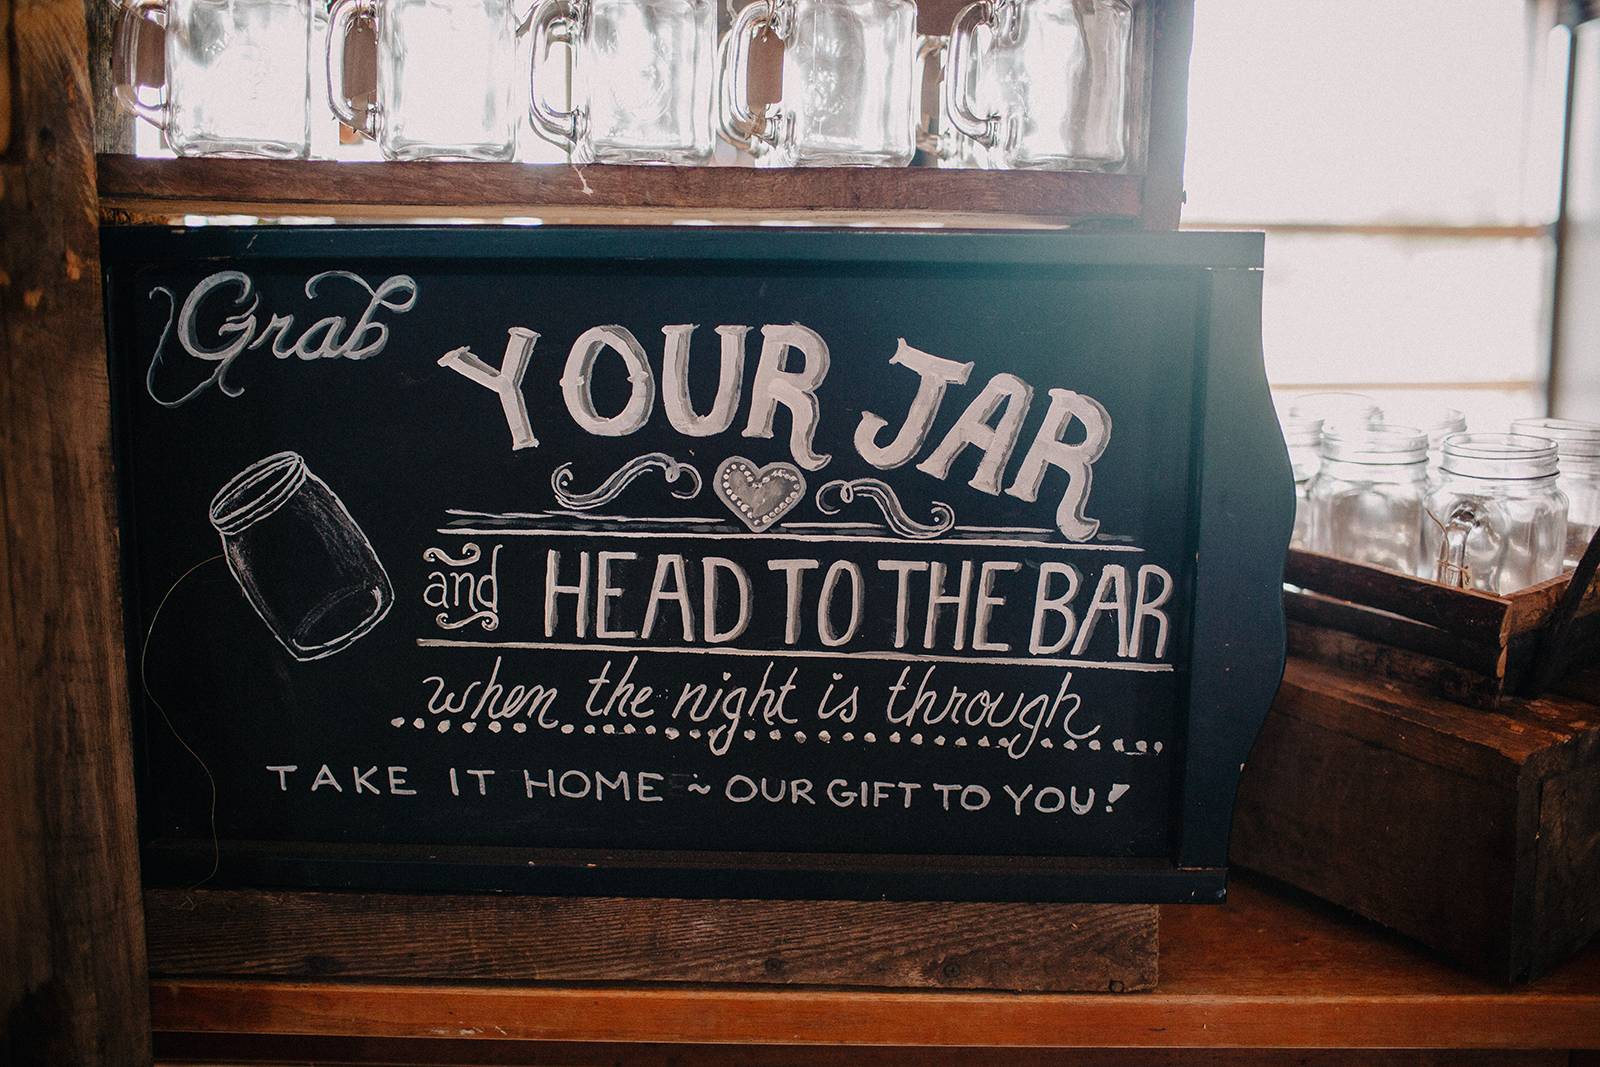 Grab
YOUR JAR
and HEAD TO THE BAR
when the night is through
TAKE IT HOME ~ OUR GIFT TO YOU!